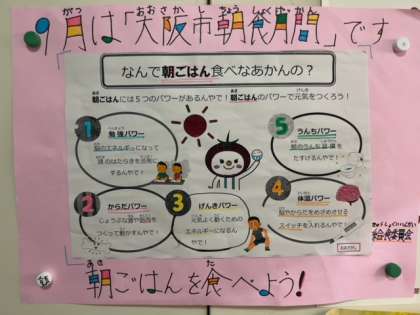 9月は「大阪市朝食月間」です
なんで朝ごはん食べなあかんの？
朝ごはんには５つのパワーがあるんやで！朝ごはんのパワーで元気をつくろう！
1 勉強パワー
脳のエネルギーになって
頭のはたらきを活発に
するんやで！
2 からだパワー
じょうぶな骨や筋肉を
つくって動かすんやで！
3 げんきパワー
元気よく動くための
エネルギーになるん
やで！
4 体温パワー
脳やからだをめざめさせる
スイッチを入れるんやで！
5 うんちパワー
朝のうんち習慣を
たすけるんやで！
給食委員会
朝ごはんを食べよう！